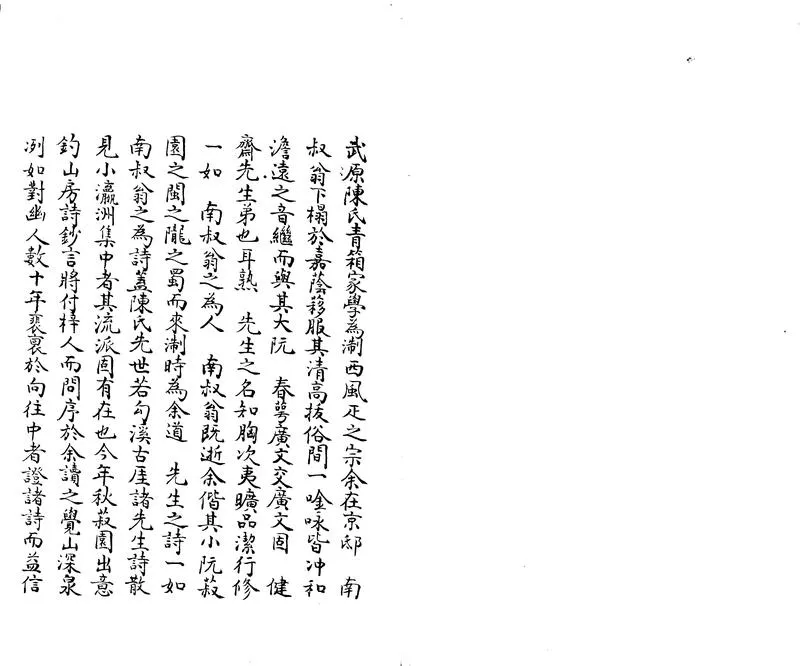 武源陳氏青箱家學為淛西風疋之宗余在京邸　南
叔翁下榻於嘉蔭移服其清高拔俗間一唫咏皆冲和
澹遠之音繼而與其大阮　春蕚廣文交廣文固　健
齋先生弟也耳熟　先生之名知胸次夷曠品潔行修
一如　南叔翁之為人　南叔翁既逝余偕其小阮菽
園之閩之隴之蜀而來淛時為余道　先生之詩一如
南叔翁之為詩蓋陳氏先世若勾溪古厓諸先生詩散
見小瀛洲集中者其流派固有在也今年秋菽園出意
釣山房詩鈔言將付梓人而問序於余讀之覺山深泉
冽如對幽人數十年裴裏於向往中者證諸詩而益信